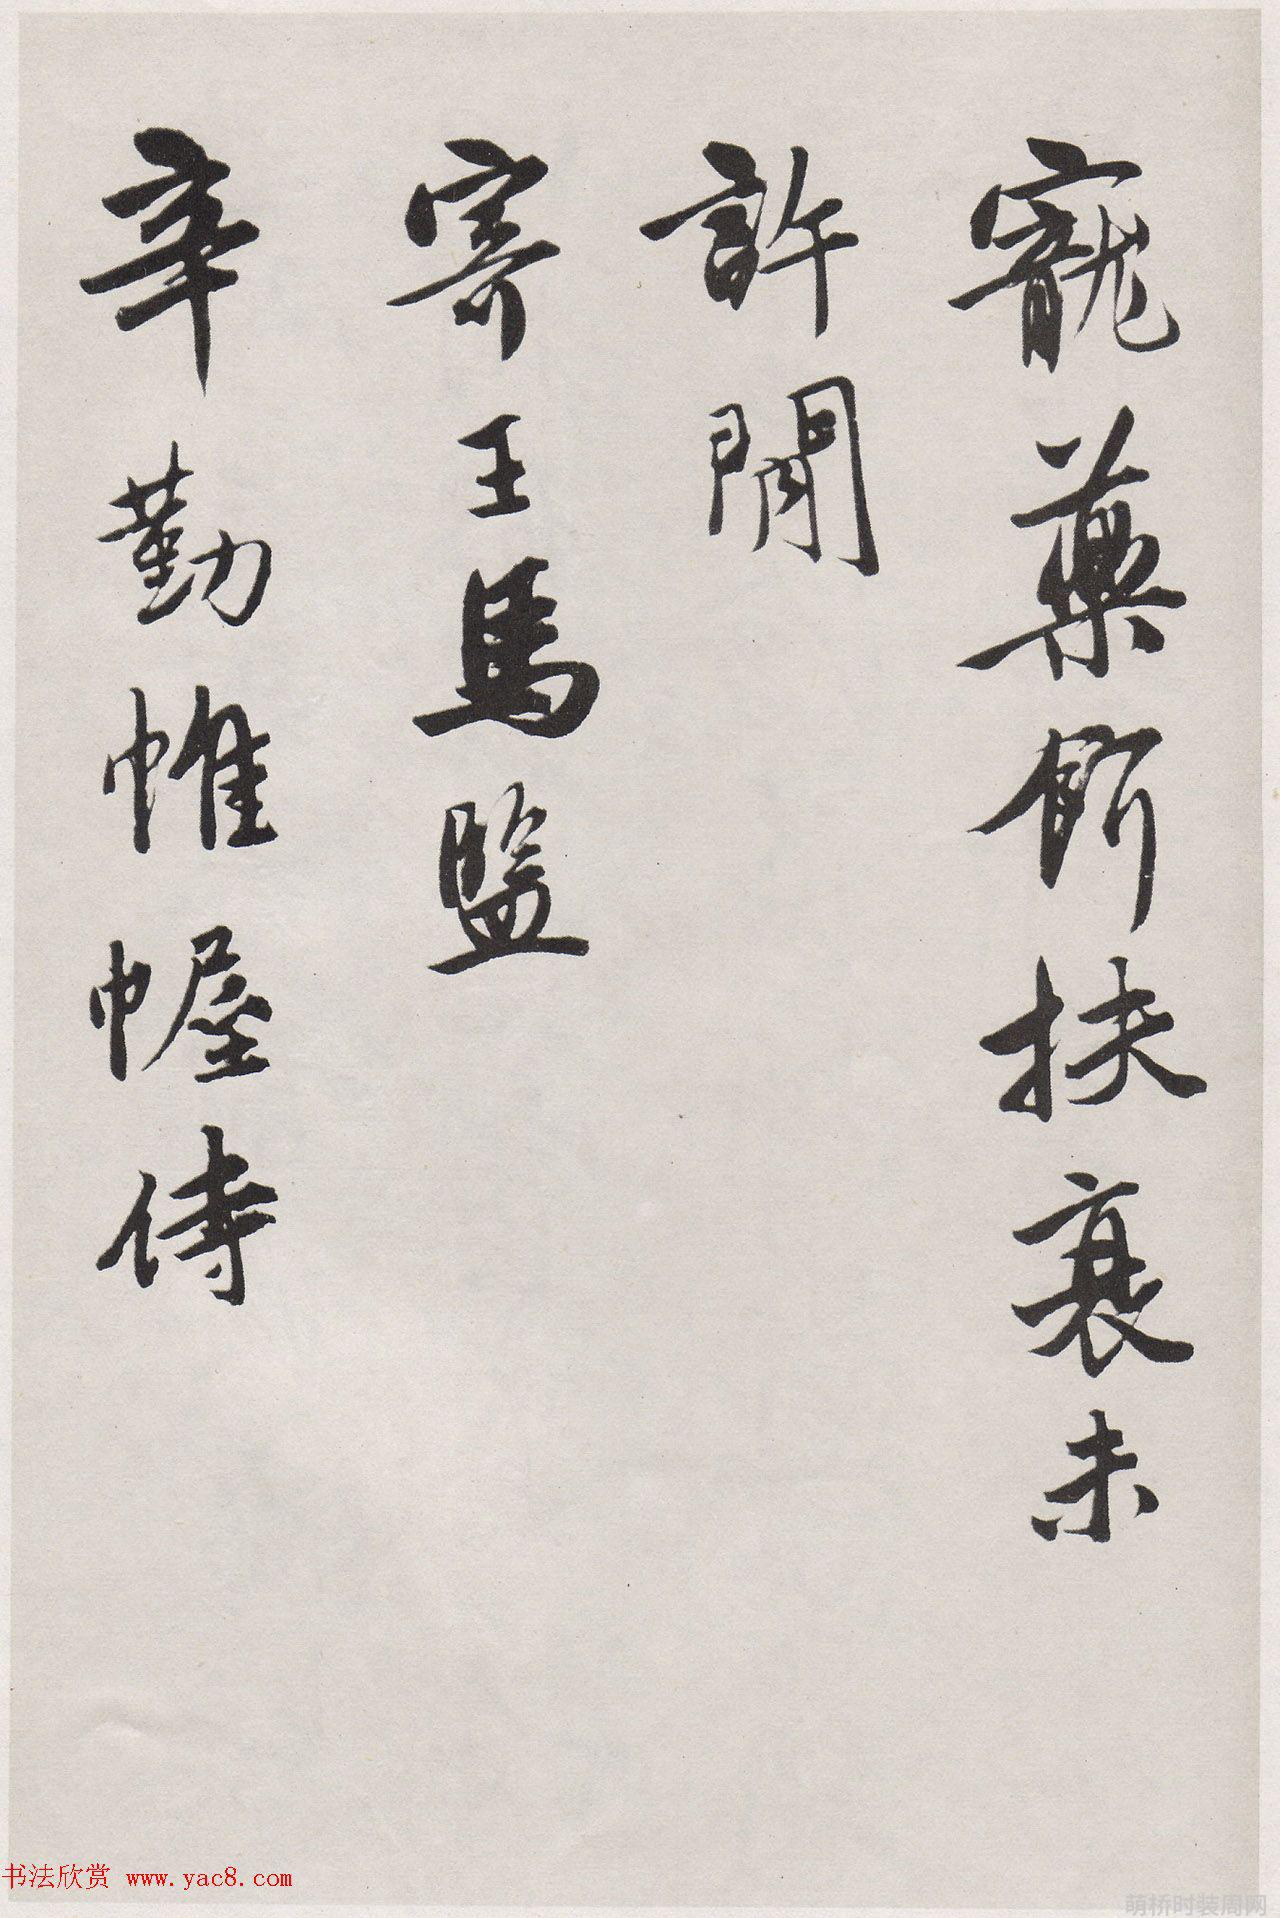 寵藥餌扶衰未
許閒
寄王馬監
辛勤帷幄侍
书法欣赏 www.yac8.com
萌桥时装周网